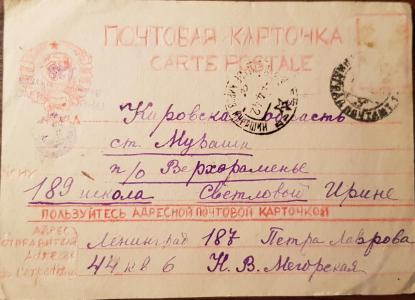 ПОЧТОВАЯ КАРТОЧКА
CARTE POSTALE
Кировская область
ст. Мураши
п/о Верхораменье
189 школа Светловой Ирине
ПОЛЬЗУЙТЕСЬ АДРЕСНОЙ ПОЧТОВОЙ КАРТОЧКОЙ
АДРЕС
ОТПРАВИТЕЛЯ
Ленинград 187 Петра Лаврова
44 кв 6 Н. В. Мегорская